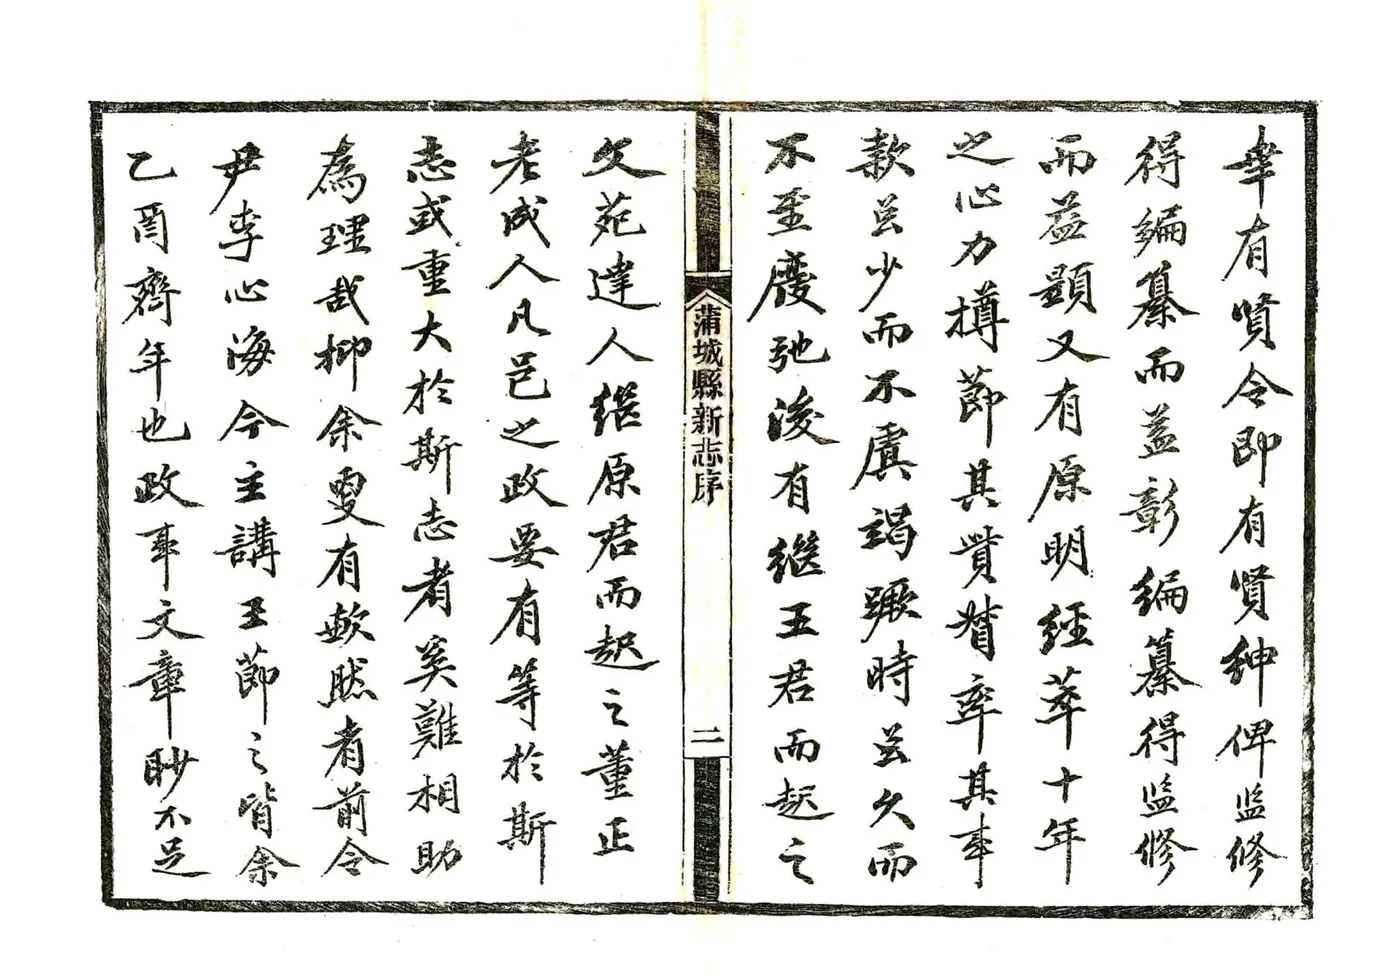 幸有賢令即有賢紳俾監修
得編纂而益彰編纂得監修
而益顯又有原明經萃十年
之心力撙節其貲贊率其事
款並少而不虞竭蹶時並久而
不至廢弛後有繼王君而起之
蒲城縣新志序
二
文苑達人繼原君而起之董正
老成人凡邑之政要有等於斯
志或重大於斯志者奚難相助
為理哉抑余更有歉然者前令
尹李心海今主講王節之皆余
乙酉齊年也政事文章眇不足